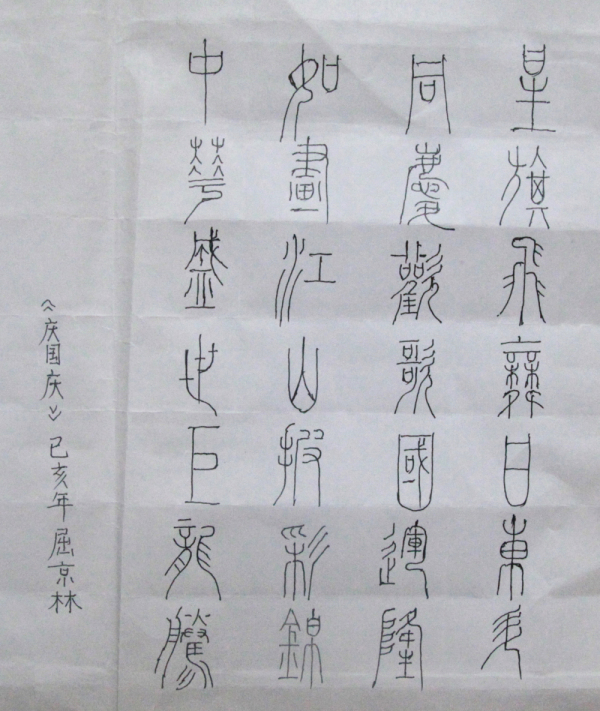 星旗飛舞日東升
同慶歡歌國運隆
如畫江山披彩錦
中華盛世巨龍騰
《庆国庆》己亥年屈京林